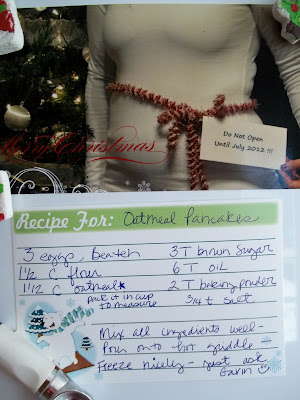 Do Not Open
Until July 2012 !!!
Merry Christmas
Recipe For: Oatmeal Pancakes
3 eggs, beaten 3 T brown sugar
1 1/2 C flour 6 T oil
1 1/2 C oatmeal* 2 T baking powder
pack it in cup 3/4 t salt
to measure
Mix all ingredients well-
Pour onto hot griddle
Freeze nicely - just ask